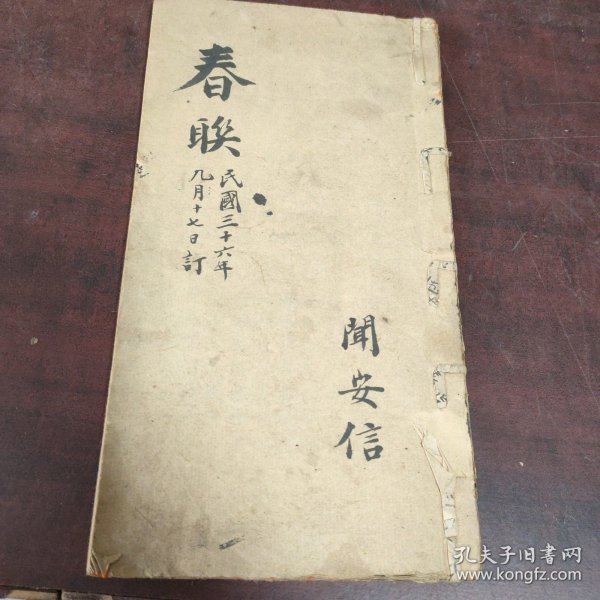 春聯
民國三十六年
九月十七日訂
聞安信
孔夫子旧书网
www.kongfz.com